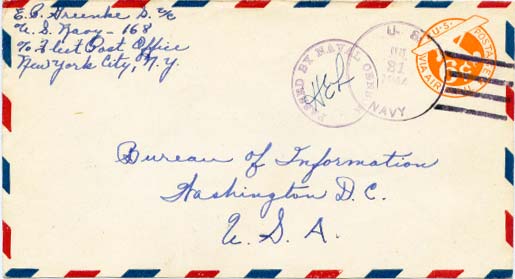 E. P. Greenke S. 1/c
U. S. Navy - 168
% Fleet Post Office
New York City, N. Y.
PASSED BY NAVAL CENSOR
U. S.
21
NAVY
U.S. POSTAGE
VIA AIR
6¢
Bureau of Information
Washington D. C.
U. S. A.